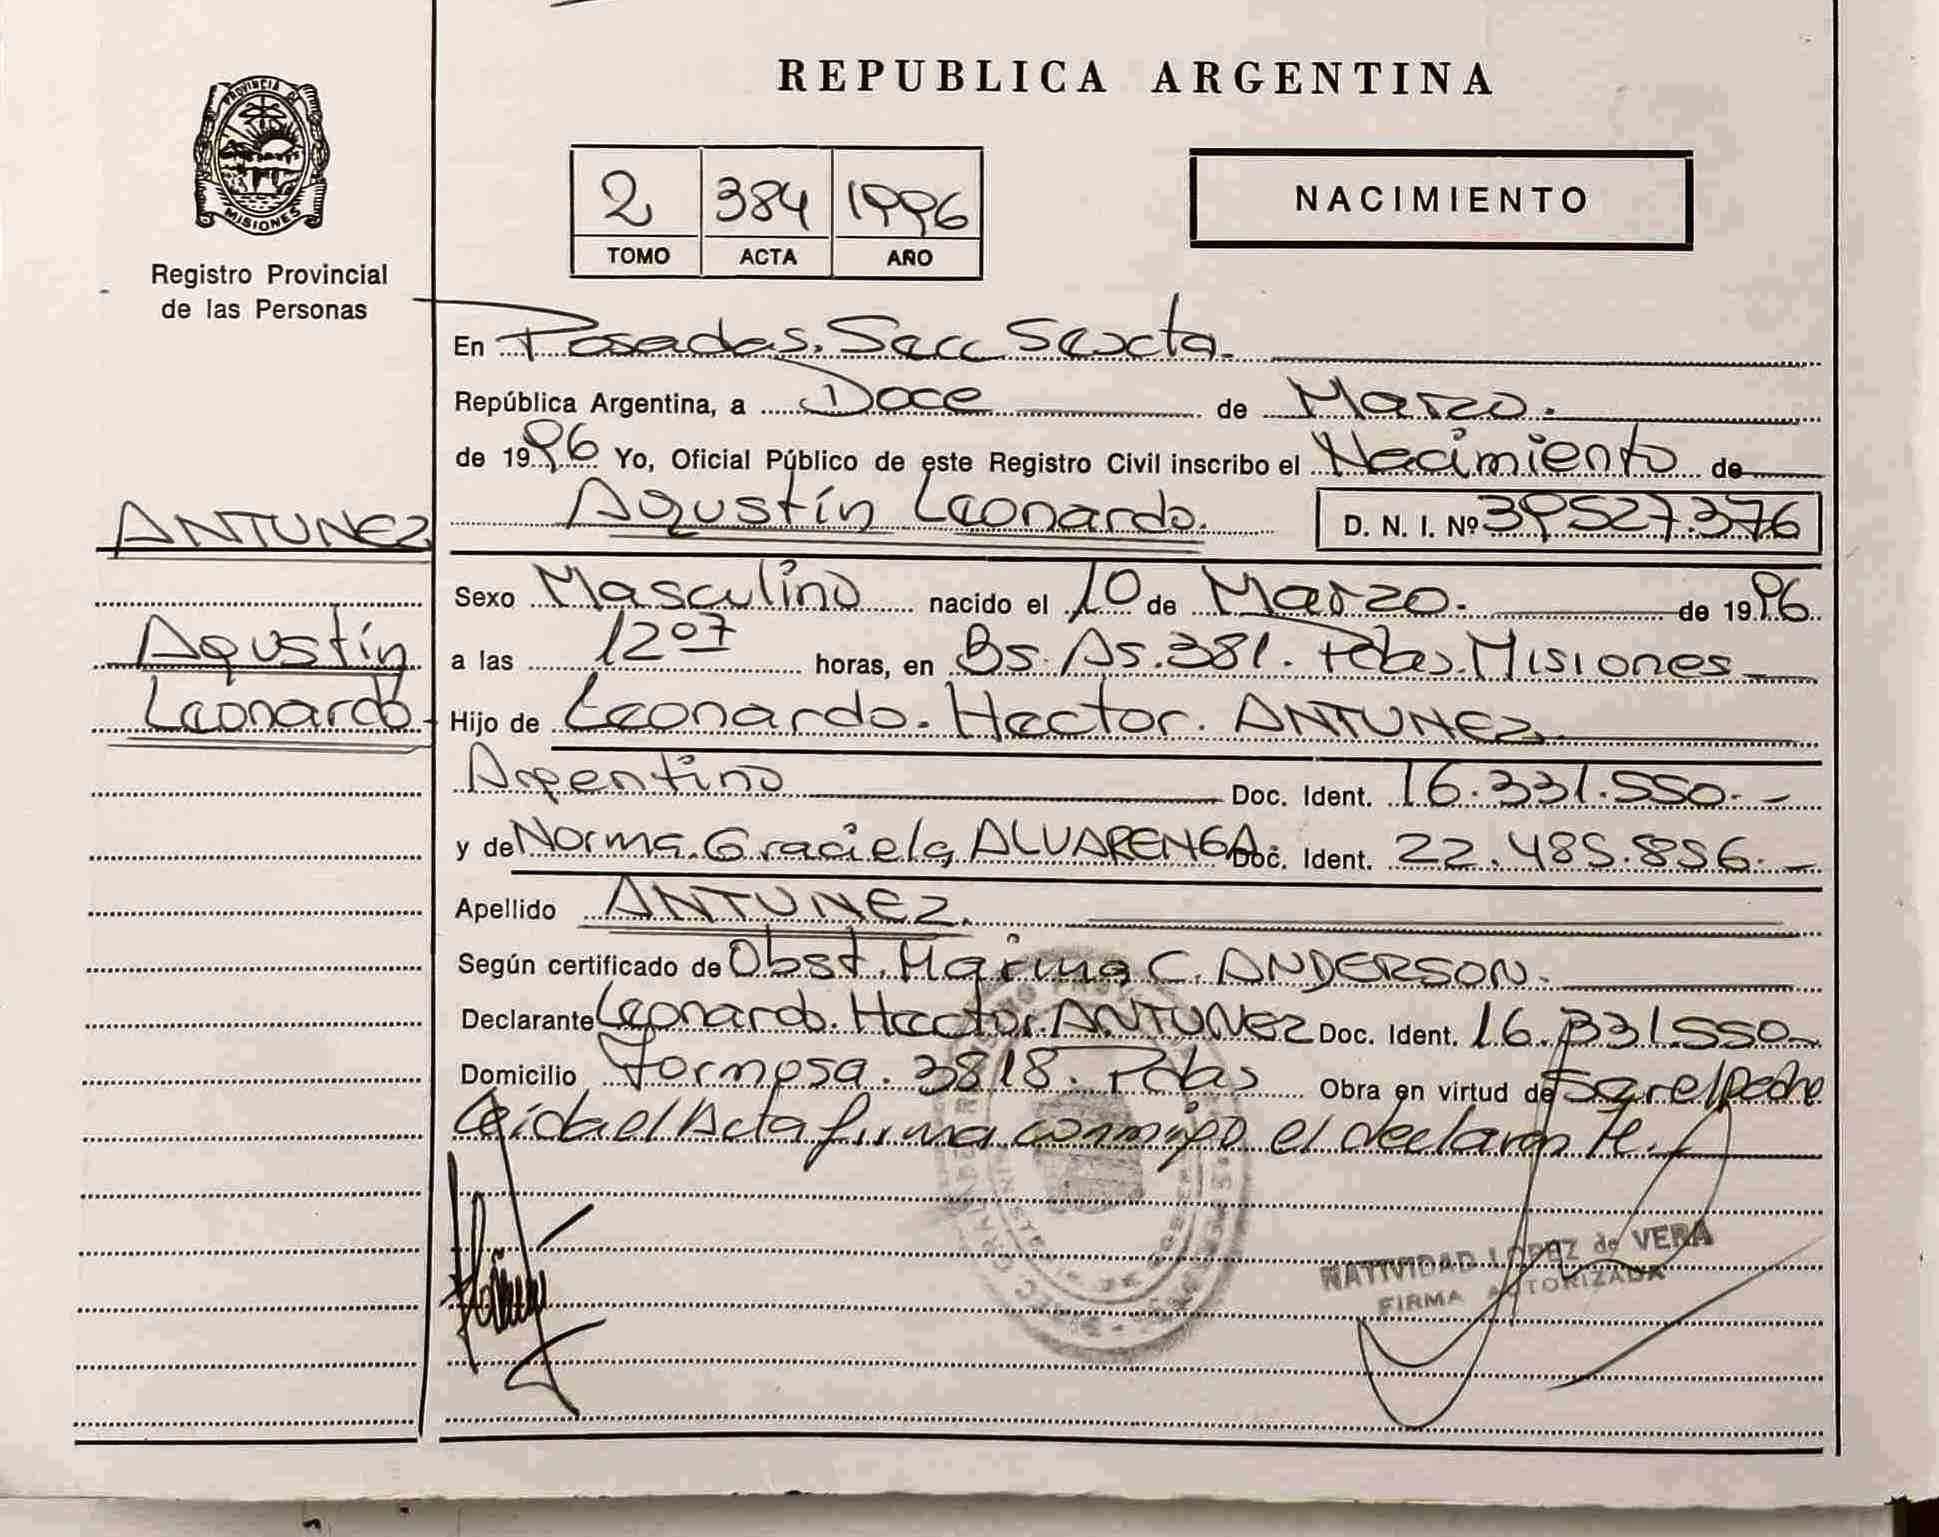 REPUBLICA ARGENTINA
PROVINCIA DE
MISIONES
Registro Provincial
de las Personas
2 384 1996
TOMO ACTA AÑO
NACIMIENTO
En Posadas. Secc Sexta.
República Argentina, a Doce de Marzo.
de 1996 Yo, Oficial Público de este Registro Civil inscribo el Nacimiento de
Agustín Leonardo. D. N. I. Nº 39527.376
ANTUNEZ
Agustín
Leonardo.
Sexo Masculino nacido el 10 de Marzo. de 1996
a las 12 07 horas, en Bs. As. 381. Pdas. Misiones
Hijo de Leonardo. Hector. ANTUNEZ
Argentino Doc. Ident. 16.331.550.-
y de Norma. Graciela ALVARENGA Doc. Ident. 22.485.856.-
Apellido ANTUNEZ.
Según certificado de Obst. Marina C. ANDERSON.
Declarante Leonardo. Hector. ANTUNEZ Doc. Ident. 16.331.550-
Domicilio Formosa. 3818. Pdas Obra en virtud de
Leída el Acta firma conmigo el declarante.
NATIVIDAD LOPEZ de VERA
FIRMA AUTORIZADA